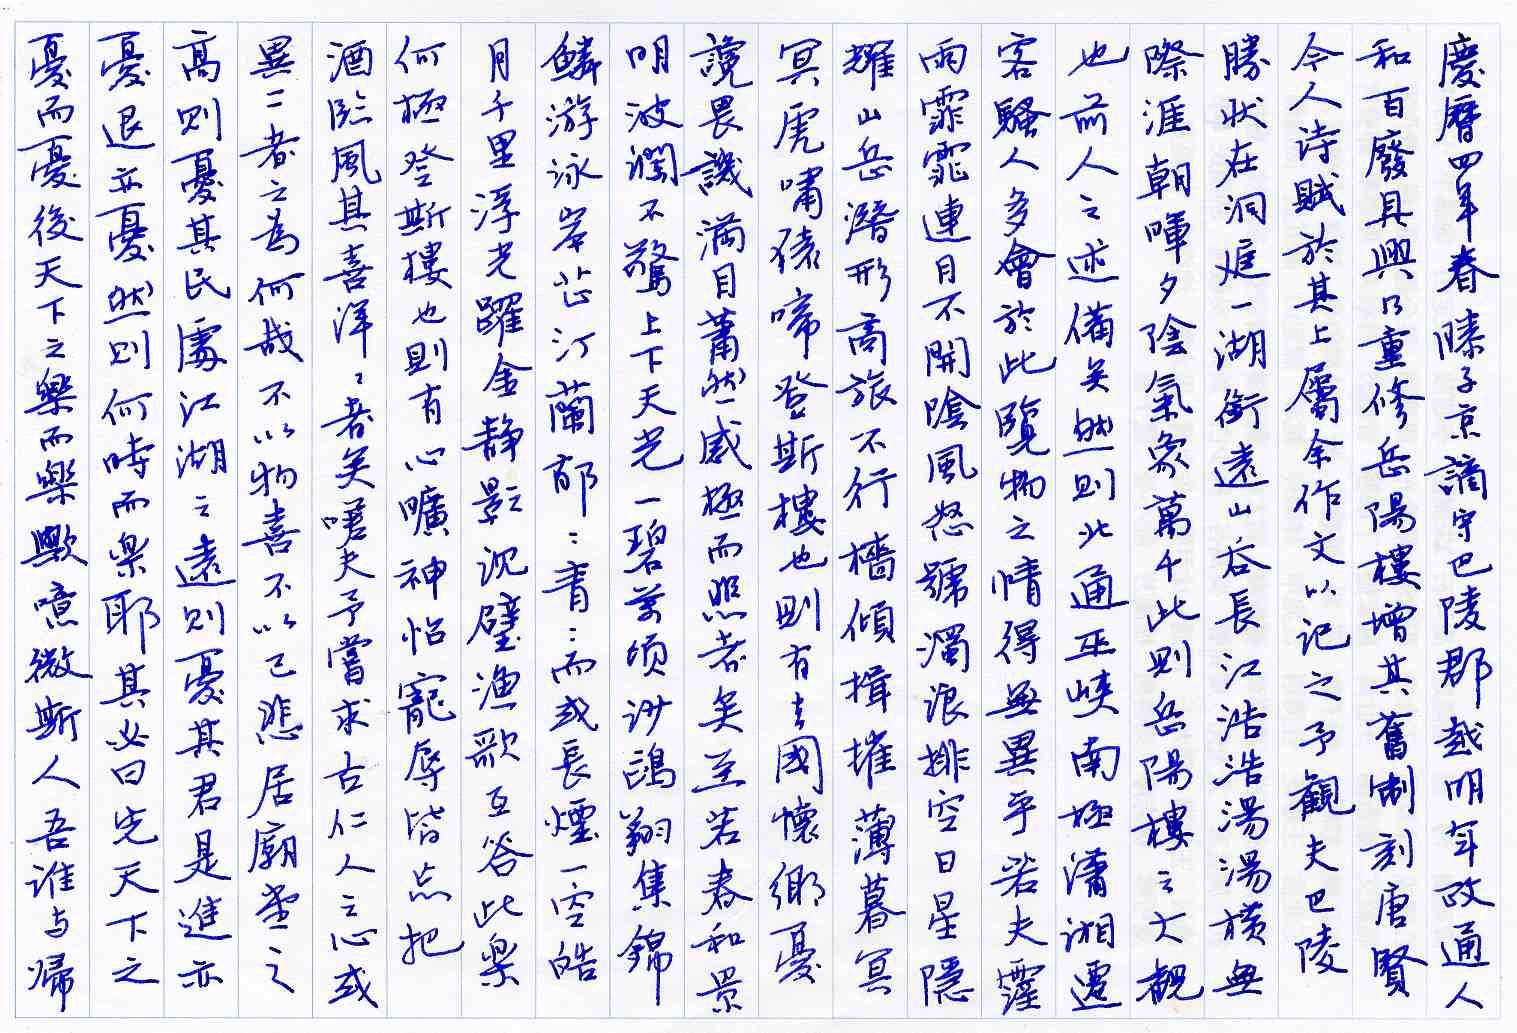 慶曆四年春滕子京謫守巴陵郡越明年政通人
和百廢具興乃重修岳陽樓增其舊制刻唐賢
今人诗賦於其上屬余作文以记之予觀夫巴陵
勝状在洞庭一湖銜遠山吞長江浩浩湯湯橫無
際涯朝暉夕陰氣象萬千此則岳陽樓之大觀
也前人之述備矣然則北通巫峽南極瀟湘遷
客騷人多會於此覽物之情得無異乎若夫霪
雨霏霏連月不開陰風怒號濁浪排空日星隱
耀山岳潛形商旅不行檣傾楫摧薄暮冥
冥虎嘯猿啼登斯樓也則有去國懷鄉憂
讒畏譏滿目蕭然感極而悲者矣至若春和景
明波瀾不驚上下天光一碧萬頃沙鷗翔集錦
鱗游泳岸芷汀蘭郁〻青〻而或長煙一空皓
月千里浮光躍金静影沉璧渔歌互答此樂
何極登斯樓也則有心曠神怡寵辱皆忘把
酒臨風其喜洋〻者矣嗟夫予嘗求古仁人之心或
異二者之為何哉不以物喜不以己悲居廟堂之
高則憂其民處江湖之遠則憂其君是進亦
憂退亦憂然則何時而樂耶其必曰先天下之
憂而憂後天下之樂而樂歟噫微斯人吾谁与歸